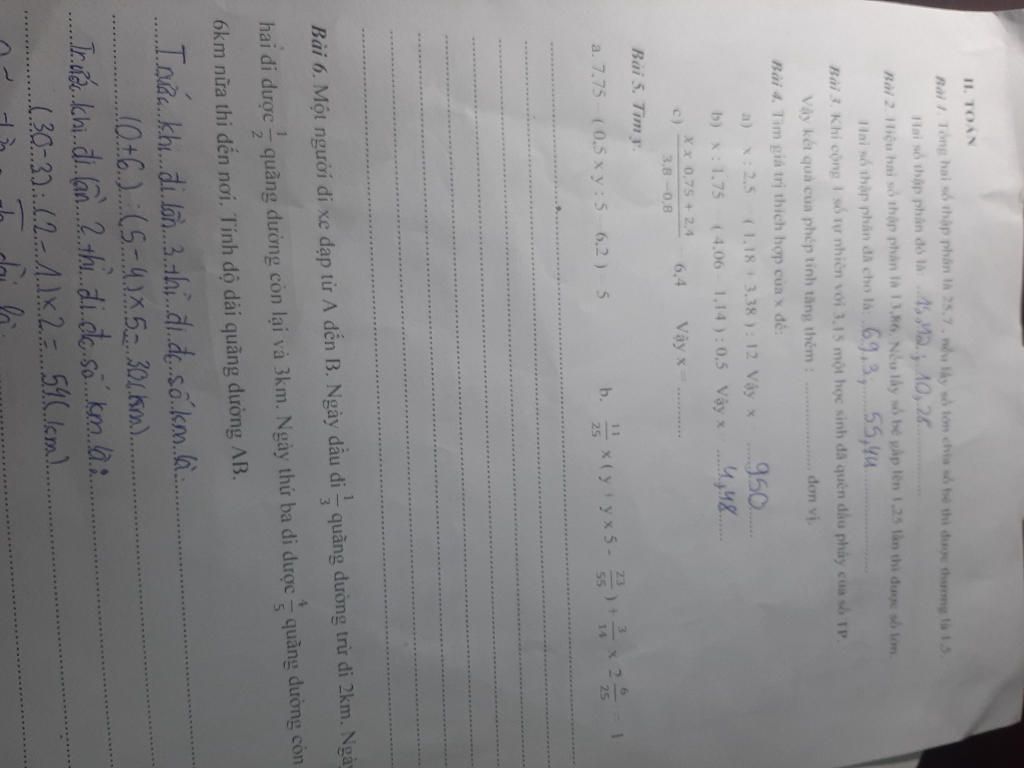 II. TOÁN
Bài 1. Tổng hai số thập phân là 25,7, nếu lấy số lớn chia số bé thì được thương là 1,5.
Hai số thập phân đó là 10,28
Bài 2. Hiệu hai số thập phân là 13,86. Nếu lấy số bé gấp lên 1,25 lần thì được số lớn.
Hai số thập phân đã cho là: 69,3, 55,44
Bài 3. Khi cộng 1 số tự nhiên với 3,15 một học sinh đã quên dấu phảy của số TP.
Vậy kết quả của phép tính tăng thêm : ............... đơn vị.
Bài 4. Tìm giá trị thích hợp của x để:
a) x : 2,5 (1,18 + 3,38) : 12 Vậy x 950
b) x : 1,75 (4,06 1,14) : 0,5 Vậy x 4,48
c) x x 0,75 + 2,4 / 3,8 – 0,8 6,4 Vậy x = ..........
Bài 5. Tìm y
a. 7,75 – ( 0,5 x y : 5 – 6,2 ) – 5 b. 11/25 x ( y + y x 5 - 23/55 ) + 3/14 x 2 6/25 = 1
Bài 6. Một người đi xe đạp từ A đến B. Ngày đầu đi 1/3 quãng đường trừ đi 2km. Ngày
hai đi được 1/2 quãng đường còn lại và 3km. Ngày thứ ba đi được 4/5 quãng đường còn
6km nữa thì đến nơi. Tính độ dài quãng đường AB.
Trước khi đi lần 3 thì đi đc số km là
(0+6) (5-4) x 5 = 30(km)
Trước khi đi lần 2 thì đi đc số km là:
(30-3) : (2-1) x 2 = 54(km)